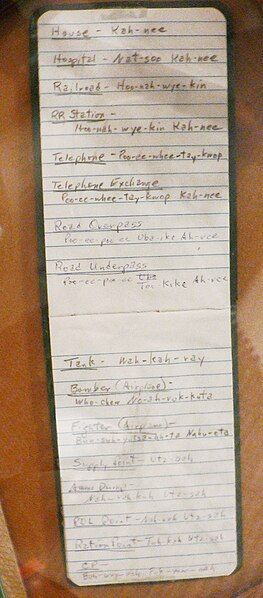 House - Kah-nee
Hospital - Nat-soo Kah-nee
Railroad - Hoo-nah-wye-kin
RR Station -
Hoo-nah-wye-kin Kah-nee
Telephone - Poo-ee-whee-tay-kwop
Telephone Exchange
Poo-ee-whee-tay-kwop Kah-nee
Road Overpass
Poo-ee-poo-ee Uba-ike Ah-vee
Road Underpass
Poo-ee-poo-ee Kike Ah-vee
Tank - Wah-kah-ray
Bomber (Airplane) -
Who-chew No-ah-vok-kuta
Fighter (Airplane) -
Supply point - Utz-oah
Ammo Dump -
Utz-oah
POL Point - Utz-oah
Ration Point Utz-oah
CP -